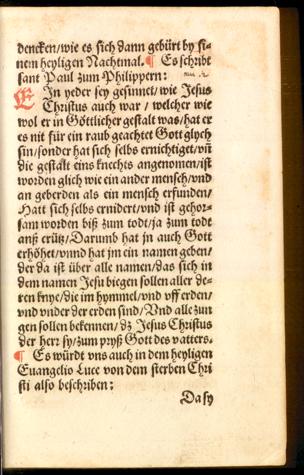 dencken/wie es sich dann gebürt by si-
nem heyligen Nachtmal.¶ Es schribt
sant Paul zum Philippern:
EIn yeder sey gesinnet/wie Jesus
Christus auch war / welcher wie
wol er in Göttlicher gestalt was/hat er
es nit für ein raub geachtet Gott glych
sin/sonder hat sich selbs ernichtiget/vñ
die gestalt eins knechts angenomen/ist
worden glich wie ein ander mensch/vnd
an geberden als ein mensch erfunden/
Hatt sich selbs ernidert/vnd ist gehor-
sam worden biß zum todt/ja zum todt
anß crütz/Darumb hat jn auch Gott
erhöhet/vnnd hat jm ein namen geben/
der da ist über alle namen/das sich in
dem namen Jesu biegen sollen aller de-
ren knye/die im hymmel/vnd vff erden/
vnd vnder der erden sind/Vnd alle zun
gen sollen bekennen/dz Jesus Christus
der herr sy/zum pryß Gott des vatters.
¶ Es würdt vns auch in dem heyligen
Euangelio Luce von dem sterben Chri
sti also beschriben:
Da sy